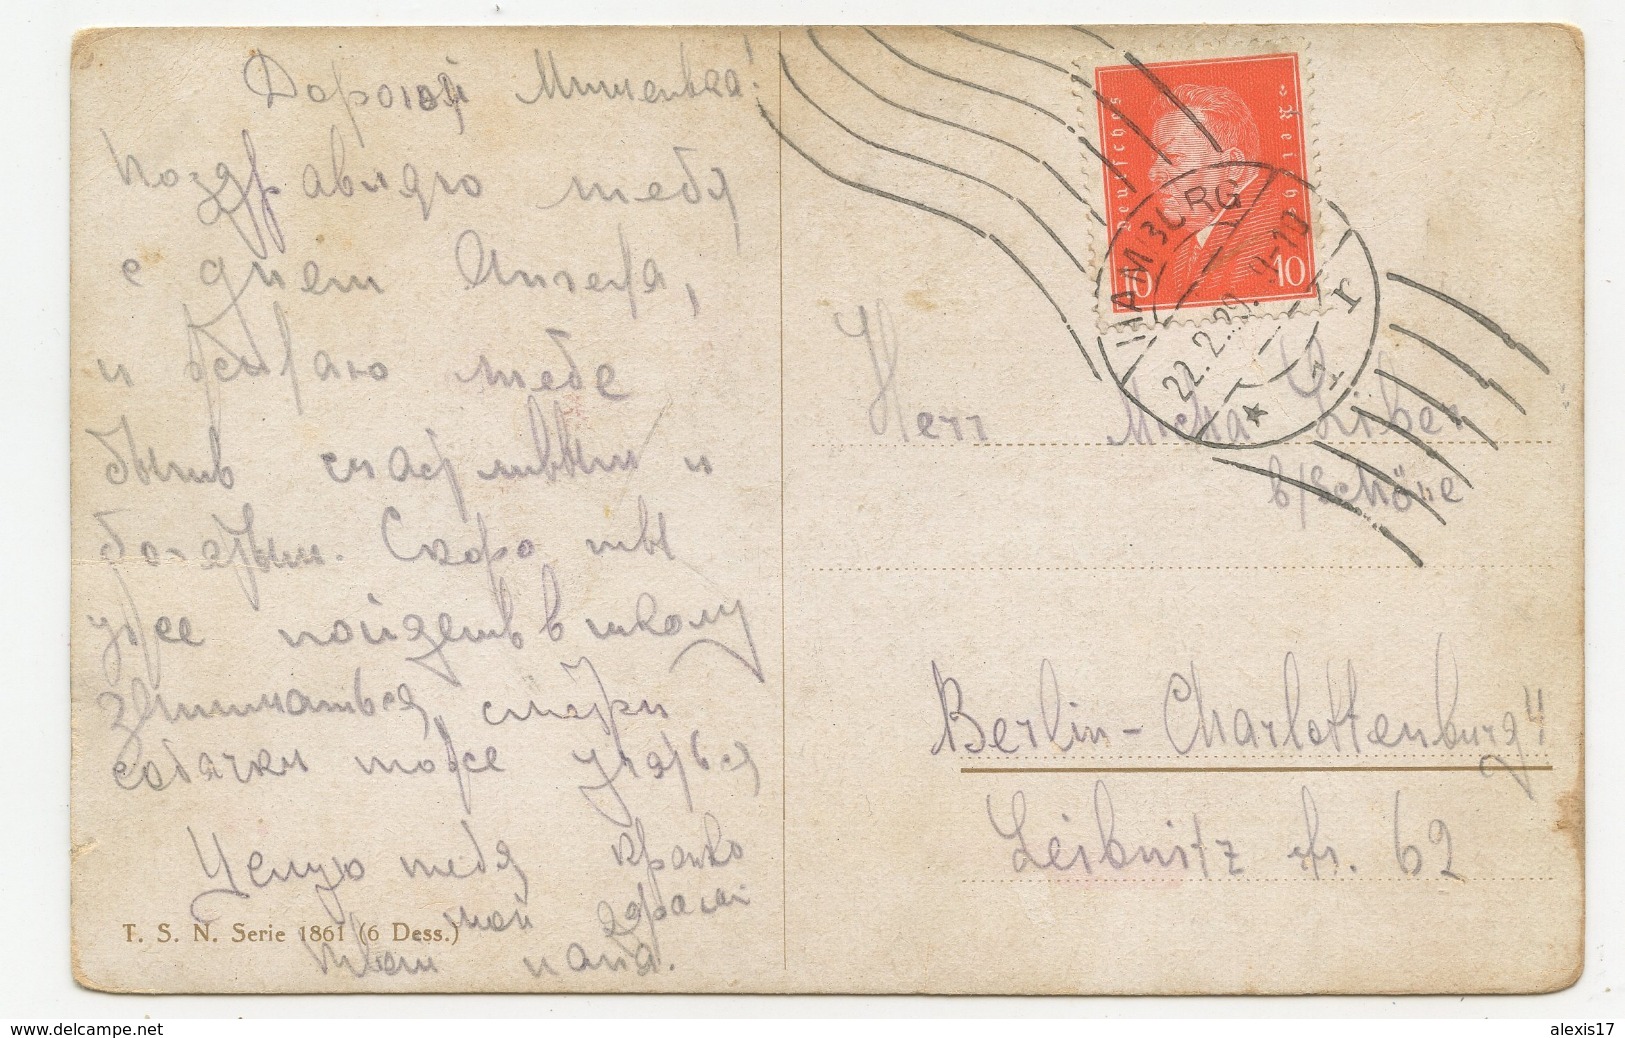 Дорогой Мишенька!
Поздравляю тебя
с днем Ангела,
и желаю тебе
быть счастливым и
богатым. Скоро ты
уже пойдешь в школу
заниматься, смотри
собачки тоже учаться
Целую тебя крепко
мой дорогой
твой папа.
T. S. N. Serie 1861 (6 Dess.)
Deutsches Reich
10 10
HAMBURG
22.2.29. 9-10
* 1 r
Herr Mischa Liber
b/Schöne
Berlin-Charlottenburg 4
Leibnitz str. 62
www.delcampe.net
alexis17